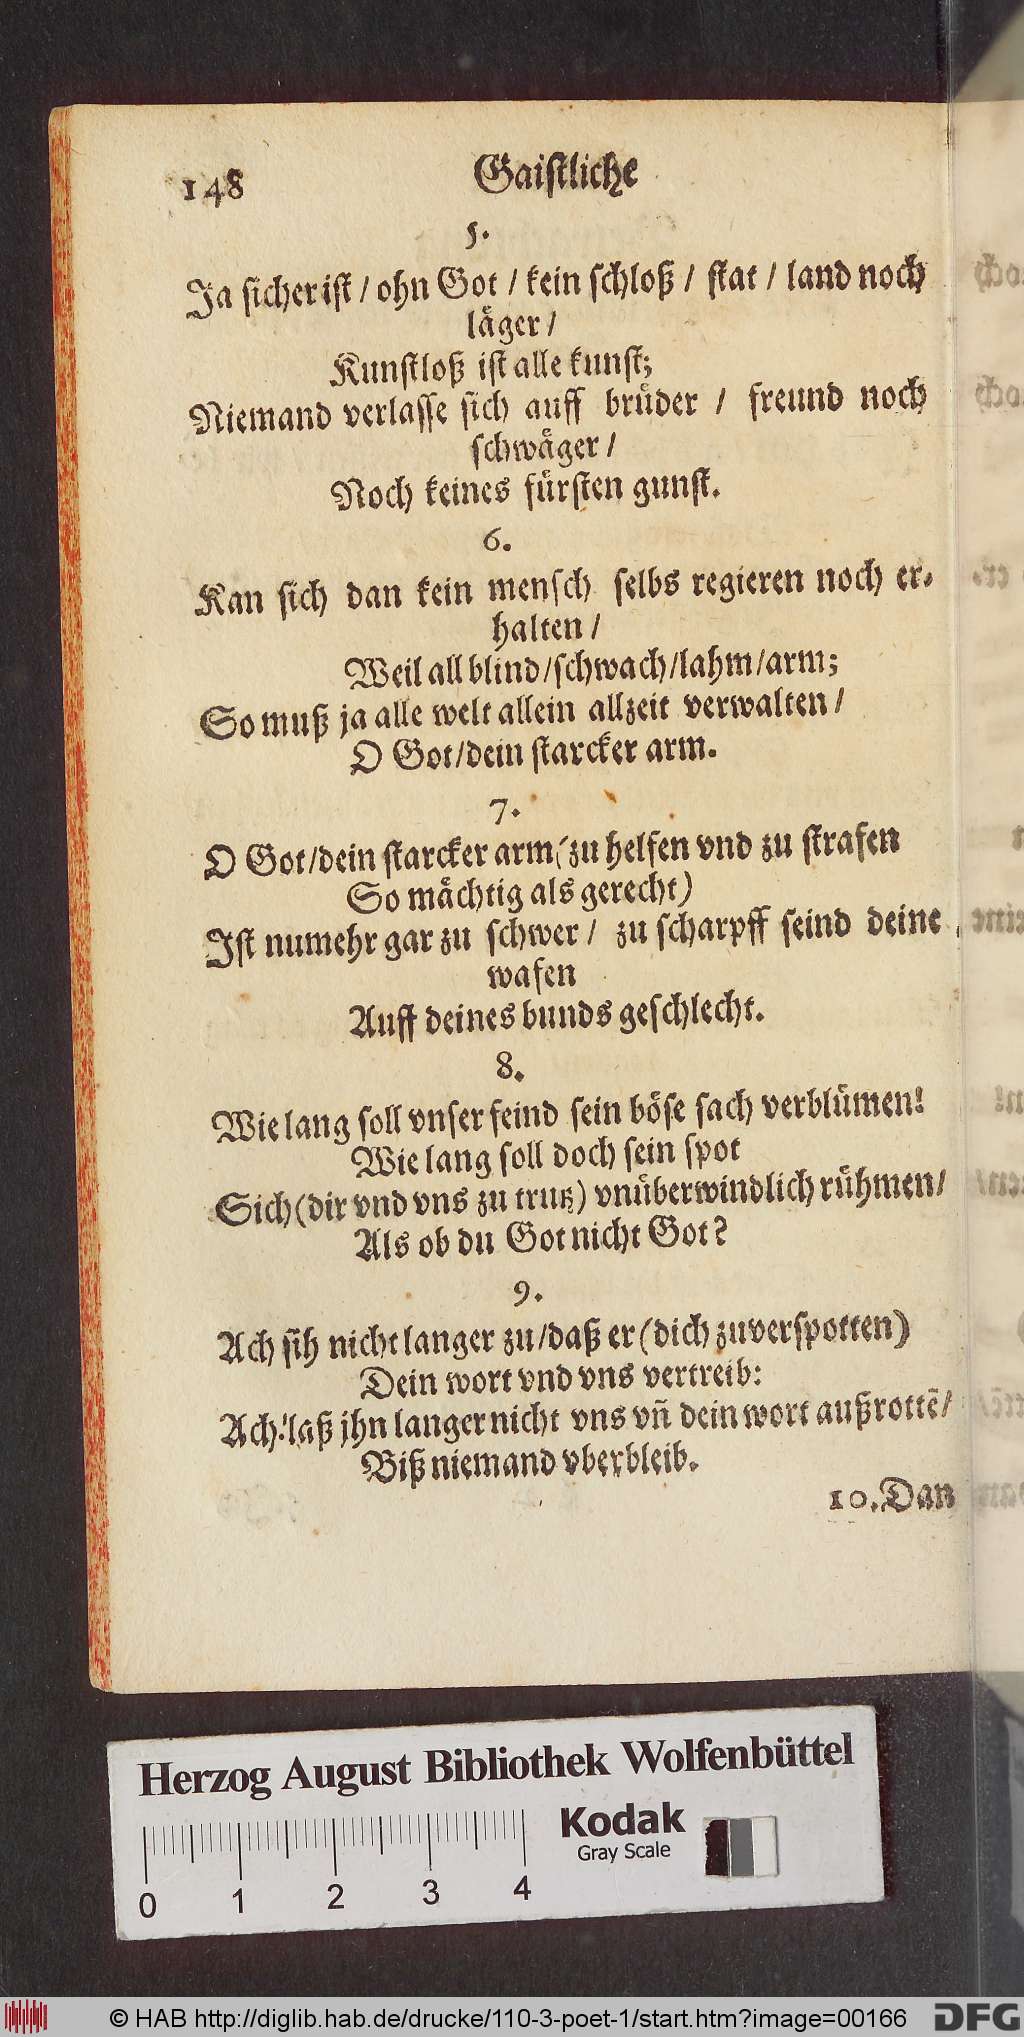 148 Gaistliche
5.
Ja sicher ist / ohn Got / kein schloß / stat / land noch
läger /
Kunstloß ist alle kunst;
Niemand verlasse sich auff brüder / freund noch
schwäger /
Noch keines fürsten gunst.
6.
Kan sich dan kein mensch selbs regieren noch er-
halten /
Weil all blind / schwach / lahm / arm;
So muß ja alle welt allein allzeit verwalten /
O Got / dein starcker arm.
7.
O Got / dein starcker arm (zu helfen vnd zu strafen
So mächtig als gerecht)
Ist numehr gar zu schwer / zu scharpff seind deine
wafen
Auff deines bunds geschlecht.
8.
Wie lang soll vnser feind sein böse sach verblümen!
Wie lang soll doch sein spot
Sich (dir vnd vns zu trutz) vnüberwindlich rühmen /
Als ob du Got nicht Got?
9.
Ach sih nicht langer zu / daß er (dich zuverspotten)
Dein wort vnd vns vertreib:
Ach! laß jhn langer nicht vns vñ dein wort außrottẽ /
Biß niemand vberbleib.
10. Dan
Herzog August Bibliothek Wolfenbüttel
Kodak
Gray Scale
0 1 2 3 4
© HAB http://diglib.hab.de/drucke/110-3-poet-1/start.htm?image=00166
DFG